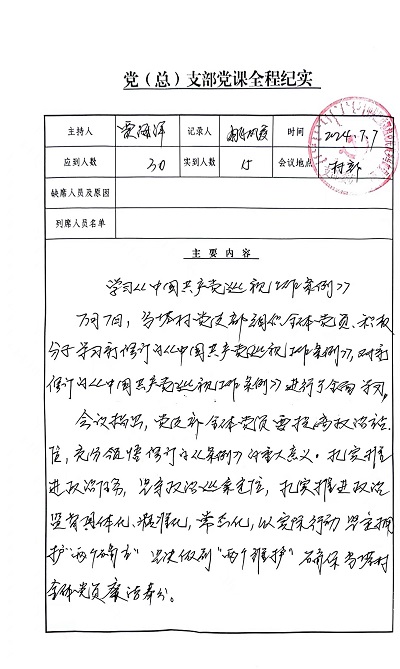 党（总）支部党课全程纪实
主持人 海洋 记录人 时间 2024.7.7
应到人数 30 实到人数 15 会议地点 村部
缺席人员及原因
列席人员名单
主要内容
学习《中国共产党巡视工作条例》
7月7日，当塔村党支部组织全体党员、积极
分子学习新修订的《中国共产党巡视工作条例》，对新
修订的《中国共产党巡视工作条例》进行了全面学习。
会议指出，党支部全体党员要提高政治站
位，充分领悟修订的《条例》的重大意义。扎实推
进政治任务，坚守政治巡察定位，扎实推进政治
监督具体化、精准化、常态化，以实际行动坚定拥
护“两个确立”坚决做到“两个维护”确保当塔村
全体党员廉洁奉公。